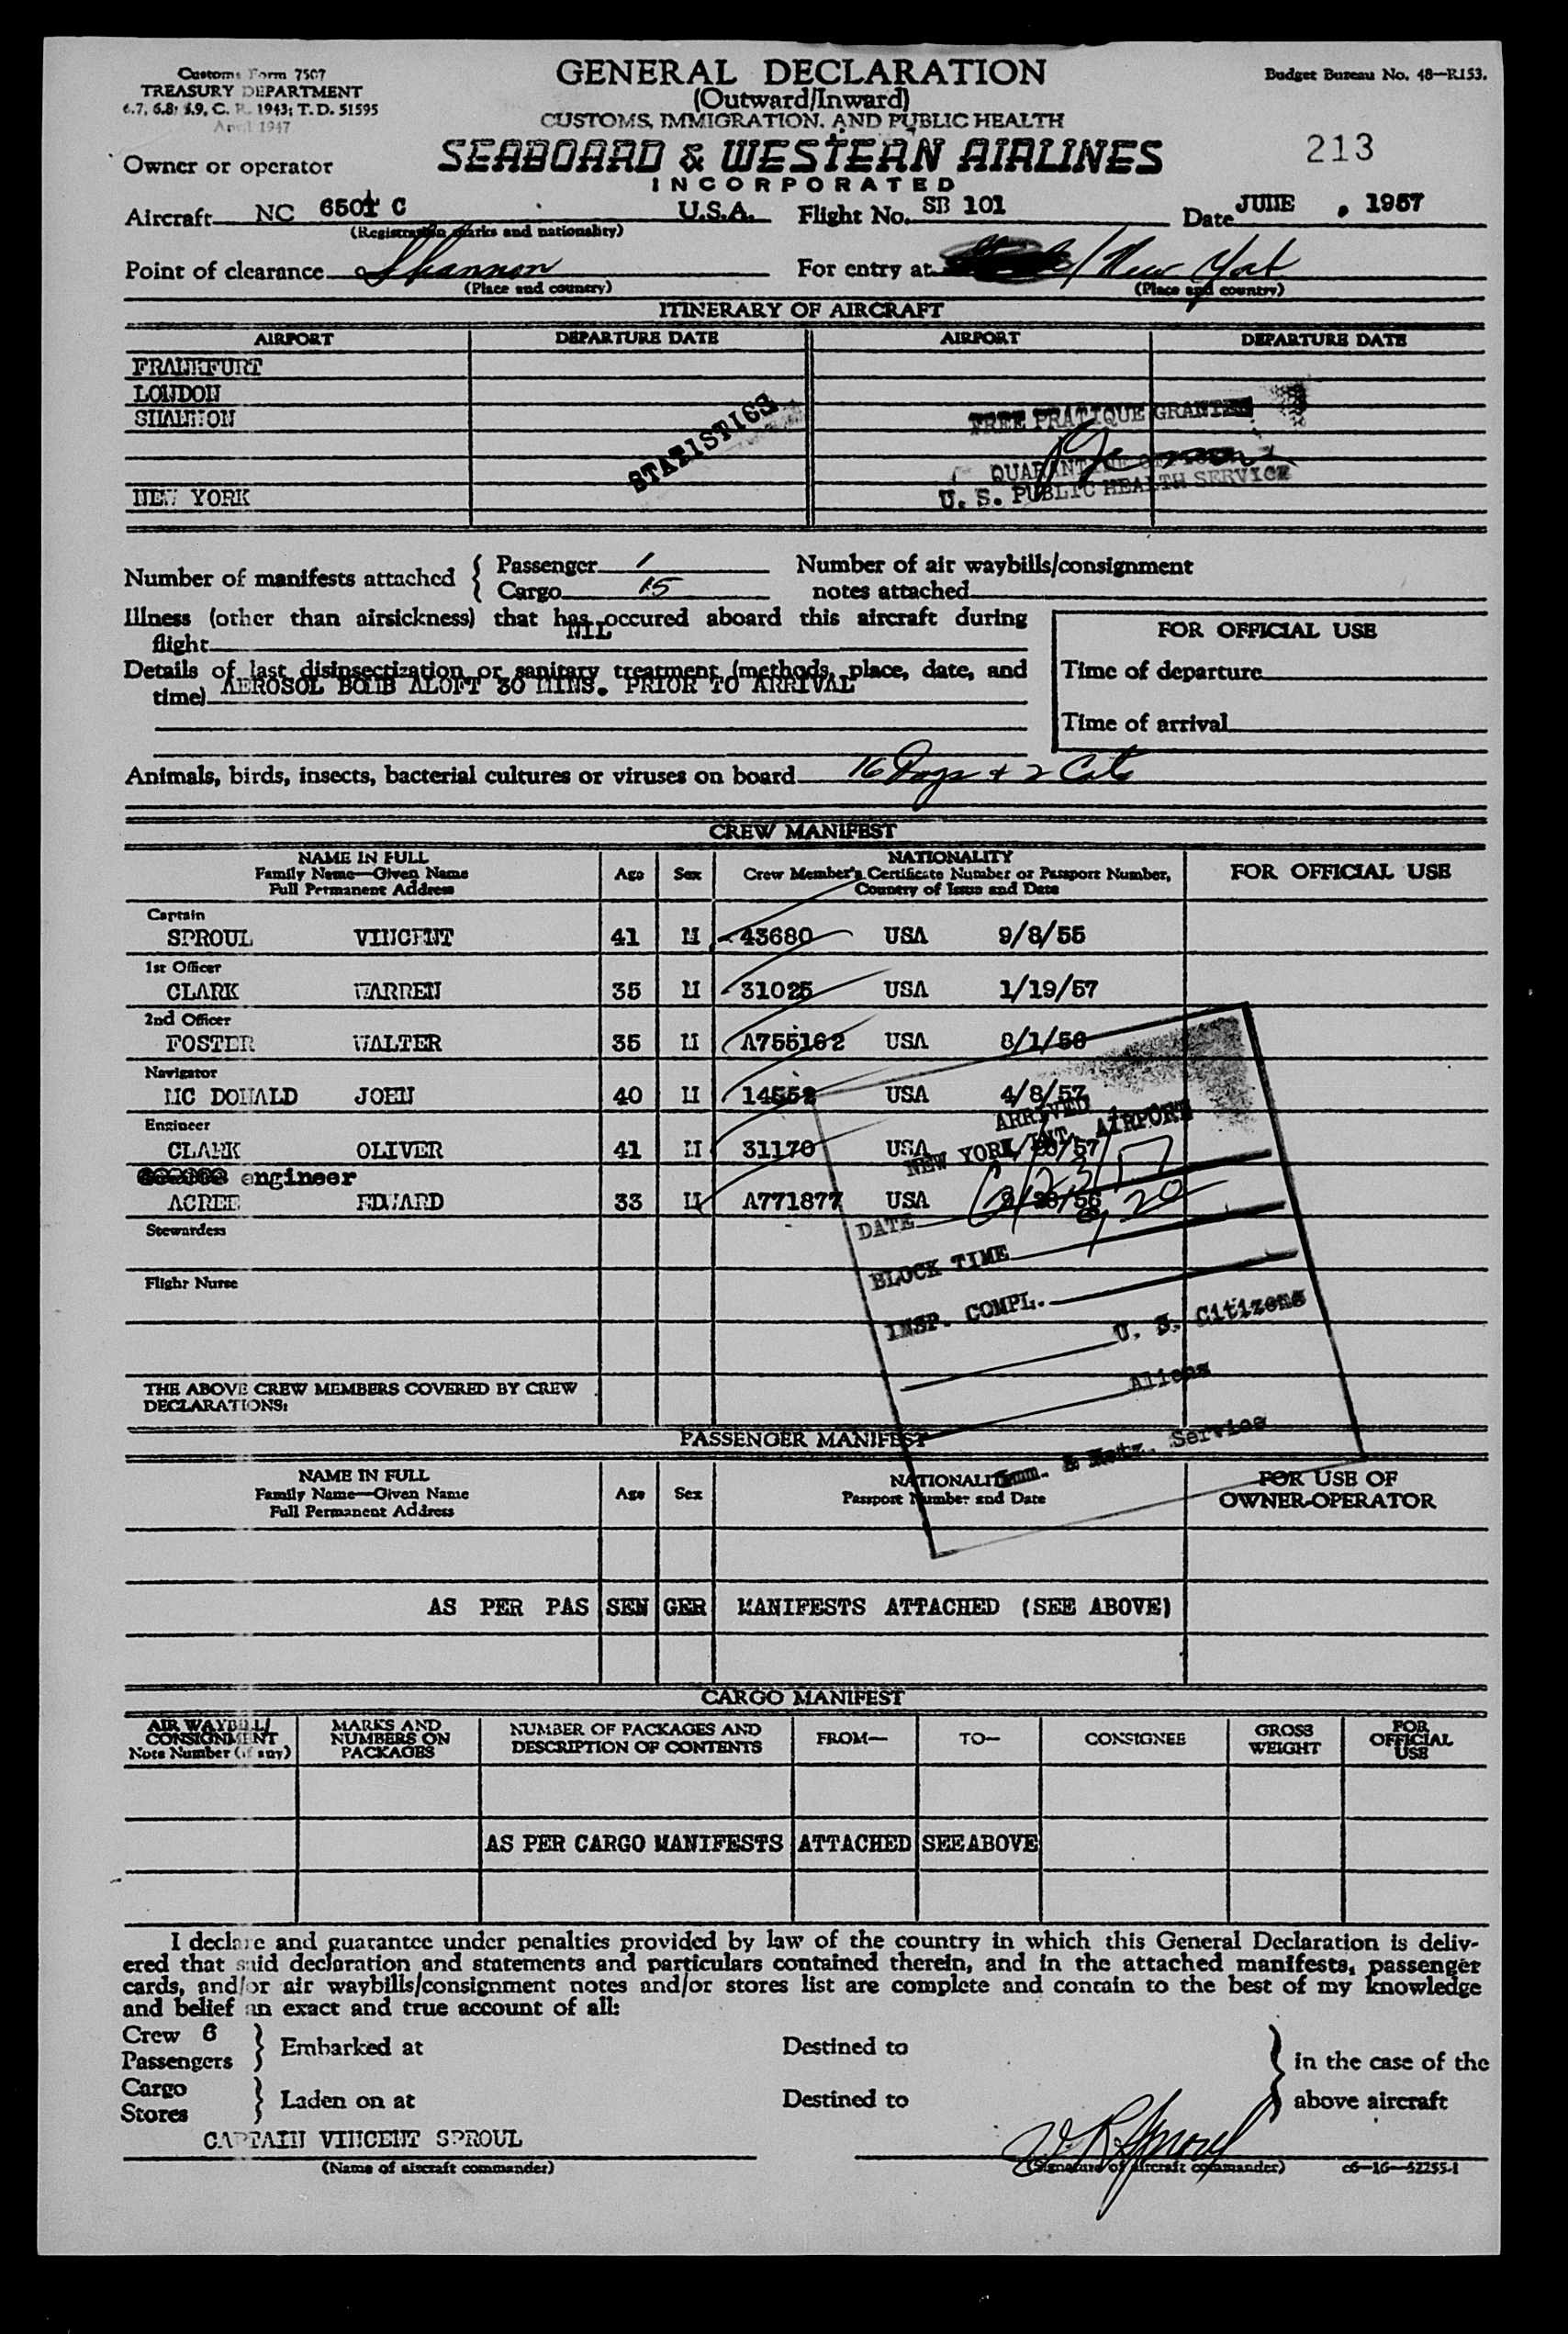 Customs Form 7507
TREASURY DEPARTMENT
6.7, 6.8, 6.9, C. R. 1943; T. D. 51595
April 1947
GENERAL DECLARATION
(Outward/Inward)
CUSTOMS, IMMIGRATION, AND PUBLIC HEALTH
Budget Bureau No. 48—R153.
213
Owner or operator
SEABOARD & WESTERN AIRLINES
INCORPORATED
Aircraft NC 6501 C U.S.A. Flight No. SB 101 Date JUNE , 1957
(Registration marks and nationality)
Point of clearance Shannon For entry at / New York
(Place and country) (Place and country)
ITINERARY OF AIRCRAFT
AIRPORT DEPARTURE DATE AIRPORT DEPARTURE DATE
FRANKFURT
LONDON
SHANNON
NEW YORK
STATISTICS
FREE PRATIQUE GRANTED
QUARANTINE
U. S. PUBLIC HEALTH SERVICE
Number of manifests attached { Passenger 1
Cargo 15
Number of air waybills/consignment
notes attached
Illness (other than airsickness) that has occured aboard this aircraft during
flight NIL
Details of last disinsectization or sanitary treatment (methods, place, date, and
time) AEROSOL BOMB ALOFT 30 MINS. PRIOR TO ARRIVAL
FOR OFFICIAL USE
Time of departure
Time of arrival
Animals, birds, insects, bacterial cultures or viruses on board 16 Dogs + 2 Cats
CREW MANIFEST
NAME IN FULL
Family Name—Given Name
Full Permanent Address
Age
Sex
NATIONALITY
Crew Member's Certificate Number or Passport Number,
Country of Issue and Date
FOR OFFICIAL USE
Captain
SPROUL VINCENT 41 M 43680 USA 9/8/55
1st Officer
CLARK WARREN 35 M 31025 USA 1/19/57
2nd Officer
FOSTER WALTER 35 M A755162 USA 8/1/56
Navigator
MC DONALD JOHN 40 M 14552 USA 4/8/57
Engineer
CLARK OLIVER 41 M 31170 USA
engineer
ACREE EDWARD 33 M A771877 USA
Stewardess
Flight Nurse
ARRIVED
NEW YORK INT. AIRPORT
DATE 6/23/57
BLOCK TIME
INSP. COMPL.
U. S. Citizens
Aliens
Imm. & Natz. Service
THE ABOVE CREW MEMBERS COVERED BY CREW
DECLARATIONS:
PASSENGER MANIFEST
NAME IN FULL
Family Name—Given Name
Full Permanent Address
Age
Sex
NATIONALITY
Passport Number and Date
FOR USE OF
OWNER-OPERATOR
AS PER PAS SEN GER MANIFESTS ATTACHED (SEE ABOVE)
CARGO MANIFEST
AIR WAYBILL/
CONSIGNMENT
Note Number (if any)
MARKS AND
NUMBERS ON
PACKAGES
NUMBER OF PACKAGES AND
DESCRIPTION OF CONTENTS
FROM—
TO—
CONSIGNEE
GROSS
WEIGHT
FOR
OFFICIAL
USE
AS PER CARGO MANIFESTS ATTACHED SEE ABOVE
I declare and guarantee under penalties provided by law of the country in which this General Declaration is deliv-
ered that said declaration and statements and particulars contained therein, and in the attached manifests, passenger
cards, and/or air waybills/consignment notes and/or stores list are complete and contain to the best of my knowledge
and belief an exact and true account of all:
Crew 6
Passengers } Embarked at Destined to
Cargo
Stores } Laden on at Destined to
} in the case of the
above aircraft
CAPTAIN VINCENT SPROUL
(Name of aircraft commander)
V R Sproul
(Signature of aircraft commander)
c6—16—52255-1